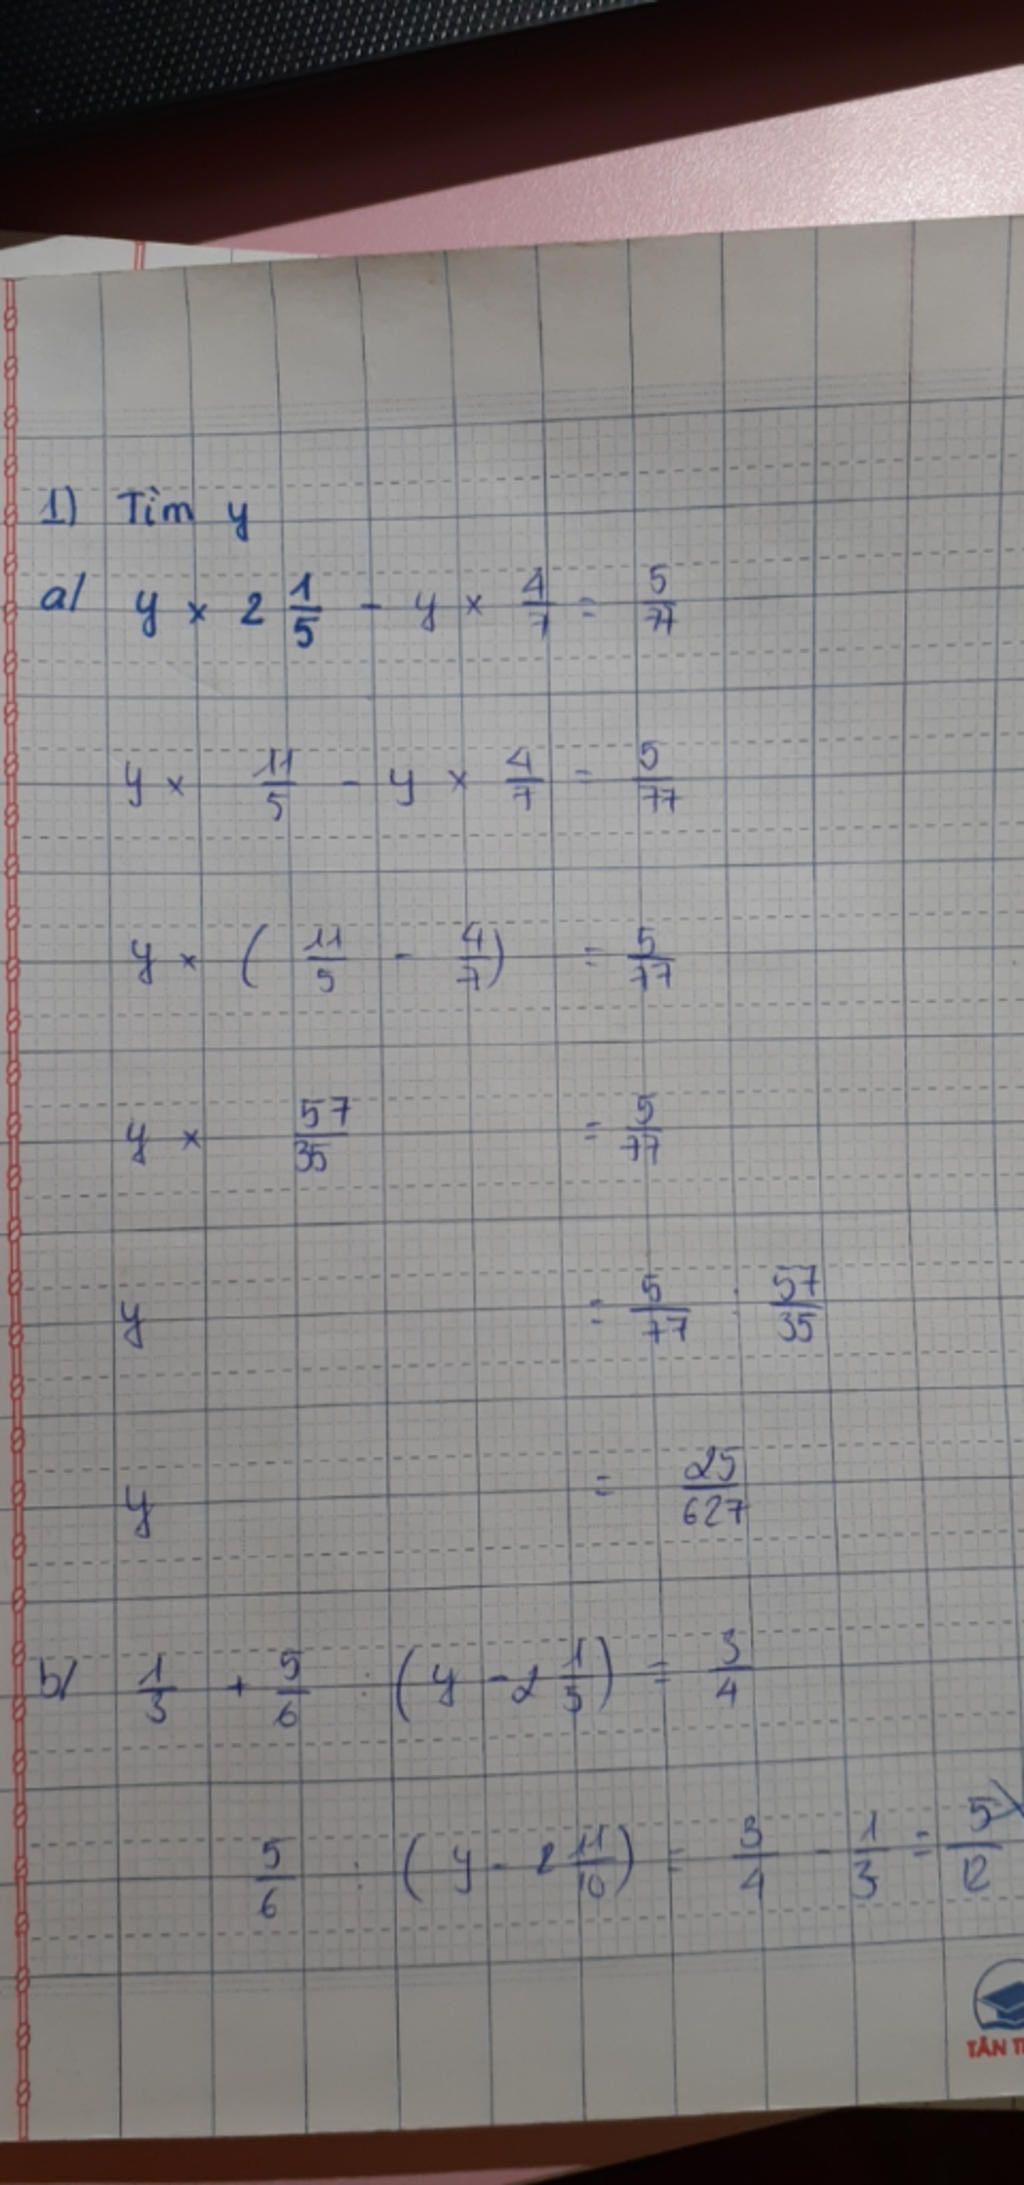 1) Tìm y
a/ y × 2 1/5 - y × 4/7 = 5/77
y × 11/5 - y × 4/7 = 5/77
y × ( 11/5 - 4/7 ) = 5/77
y × 57/35 = 5/77
y = 5/77 : 57/35
y = 25/627
b/ 1/3 + 5/6 : ( y - 2 1/5 ) = 3/4
5/6 : ( y - 2 11/10 ) = 3/4 - 1/3 = 5/12
TÂN